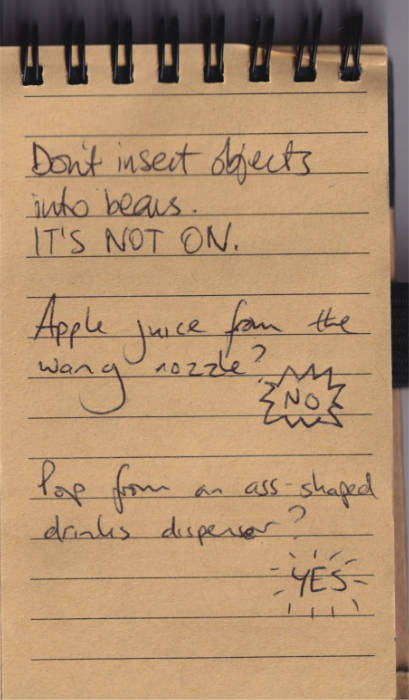 Don't insert objects
into bears.
IT'S NOT ON.
Apple juice from the
wang nozzle?
NO
Pop from an ass-shaped
drinks dispenser?
YES